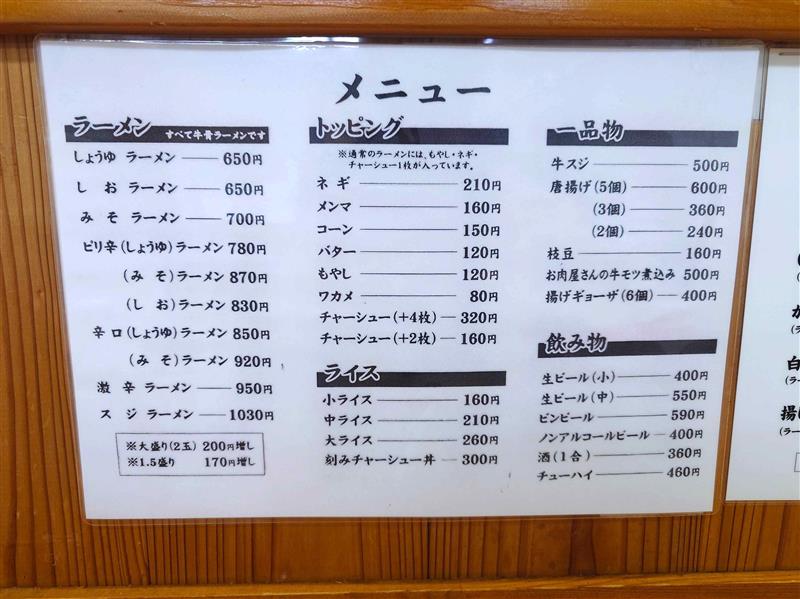 メニュー
ラーメン すべて牛骨ラーメンです
しょうゆ ラーメン 650円
しお ラーメン 650円
みそ ラーメン 700円
ピリ辛(しょうゆ)ラーメン 780円
(みそ)ラーメン 870円
(しお)ラーメン 830円
辛口(しょうゆ)ラーメン 850円
(みそ)ラーメン 920円
激辛 ラーメン 950円
スジ ラーメン 1030円
※大盛り(2玉) 200円増し
※1.5盛り 170円増し
トッピング
※通常のラーメンには、もやし・ネギ・
チャーシュー1枚が入っています。
ネギ 210円
メンマ 160円
コーン 150円
バター 120円
もやし 120円
ワカメ 80円
チャーシュー(+4枚) 320円
チャーシュー(+2枚) 160円
ライス
小ライス 160円
中ライス 210円
大ライス 260円
刻みチャーシュー丼 300円
一品物
牛スジ 500円
唐揚げ(5個) 600円
(3個) 360円
(2個) 240円
枝豆 160円
お肉屋さんの牛モツ煮込み 500円
揚げギョーザ(6個) 400円
飲み物
生ビール(小) 400円
生ビール(中) 550円
ビンビール 590円
ノンアルコールビール 400円
酒(1合) 360円
チューハイ 460円